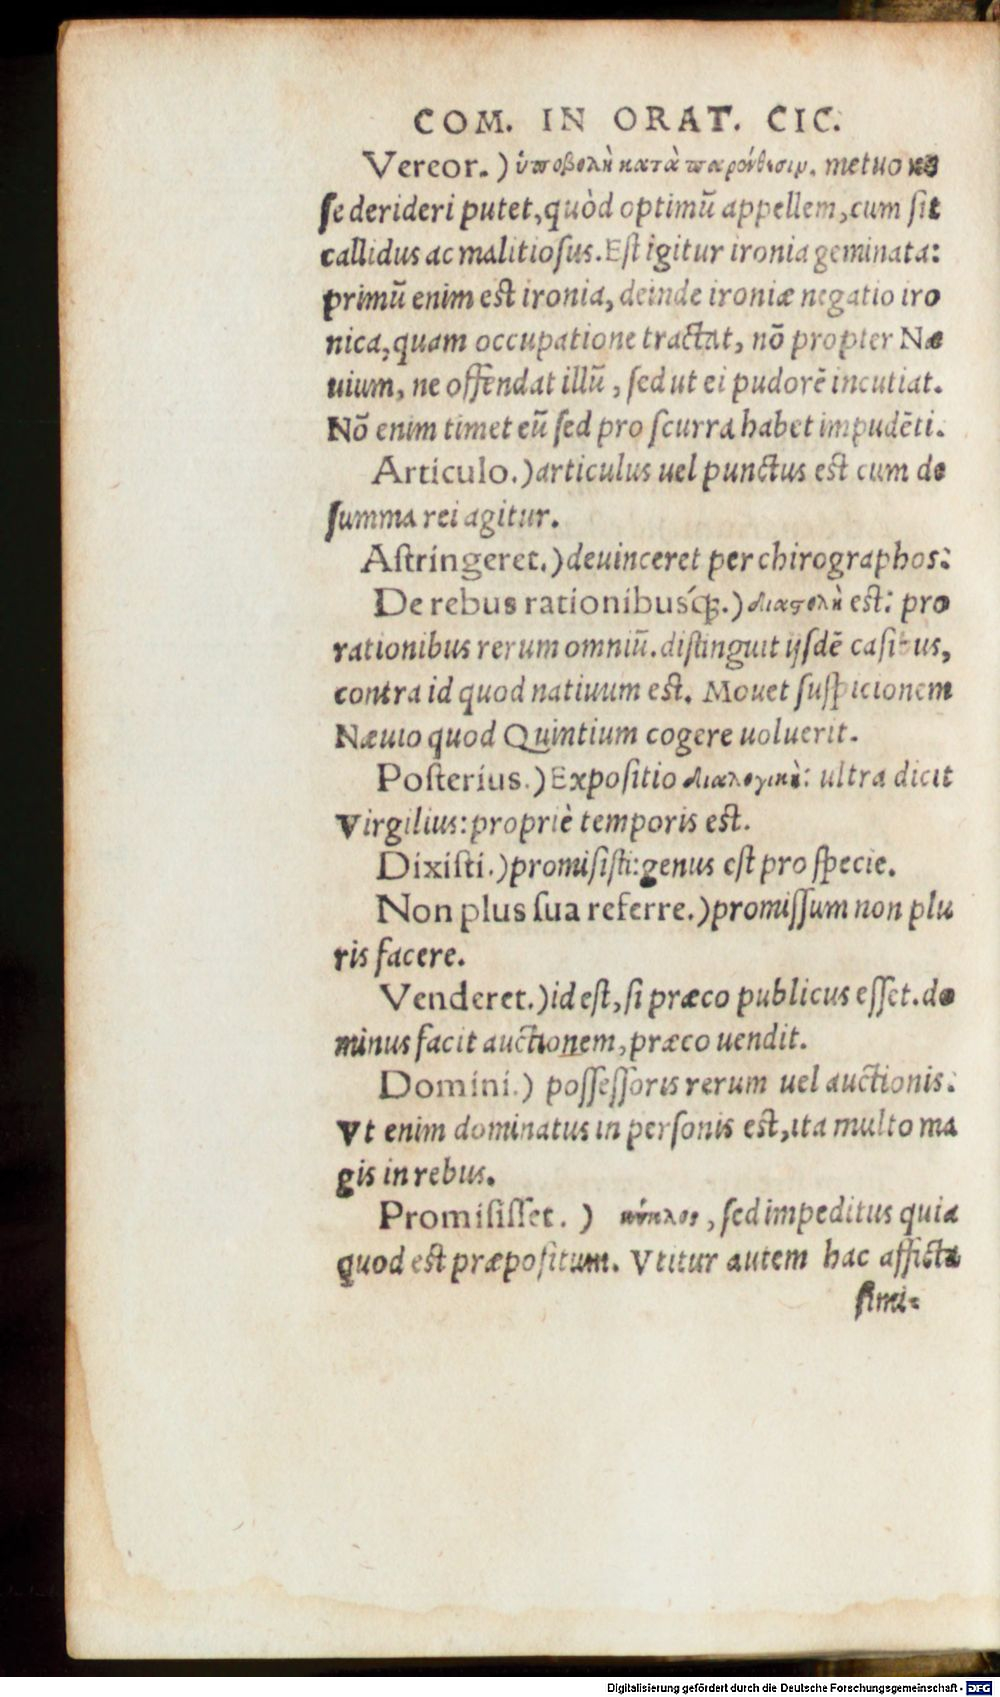 COM. IN ORAT. CIC.
Vereor.) ὑποβολὴ κατὰ παρένθεσιν. metuo ne
se derideri putet, quòd optimũ appellem, cum sit
callidus ac malitiosus. Est igitur ironia geminata:
primũ enim est ironia, deinde ironiæ negatio iro
nica, quam occupatione tractat, nõ propter Næ
uium, ne offendat illũ, sed ut ei pudorẽ incutiat.
Nõ enim timet eũ sed pro scurra habet impudẽti.
Articulo.) articulus uel punctus est cum de
summa rei agitur.
Astringeret.) deuinceret per chirographos:
De rebus rationibusq́;.) διαστολὴ est: pro
rationibus rerum omniũ. distinguit ijsdẽ casibus,
contra id quod natiuum est. Mouet suspicionem
Næuio quod Quintium cogere uoluerit.
Posterius.) Expositio διαλογικὴ: ultra dicit
Virgilius: propriè temporis est.
Dixisti.) promisisti: genus est pro specie.
Non plus sua referre.) promissum non plu
ris facere.
Venderet.) id est, si præco publicus esset. do
minus facit auctionem, præco uendit.
Domini.) possessoris rerum uel auctionis:
Vt enim dominatus in personis est, ita multo ma
gis in rebus.
Promisisset.) κύκλος, sed impeditus quia
quod est præpositum. Vtitur autem hac afficta
simi-
Digitalisierung gefördert durch die Deutsche Forschungsgemeinschaft - DFG